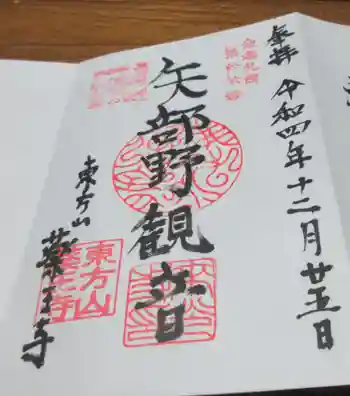 奉拝 令和四年十二月廿五日
矢部野観音
東方山
薬王寺
東方山
薬王寺